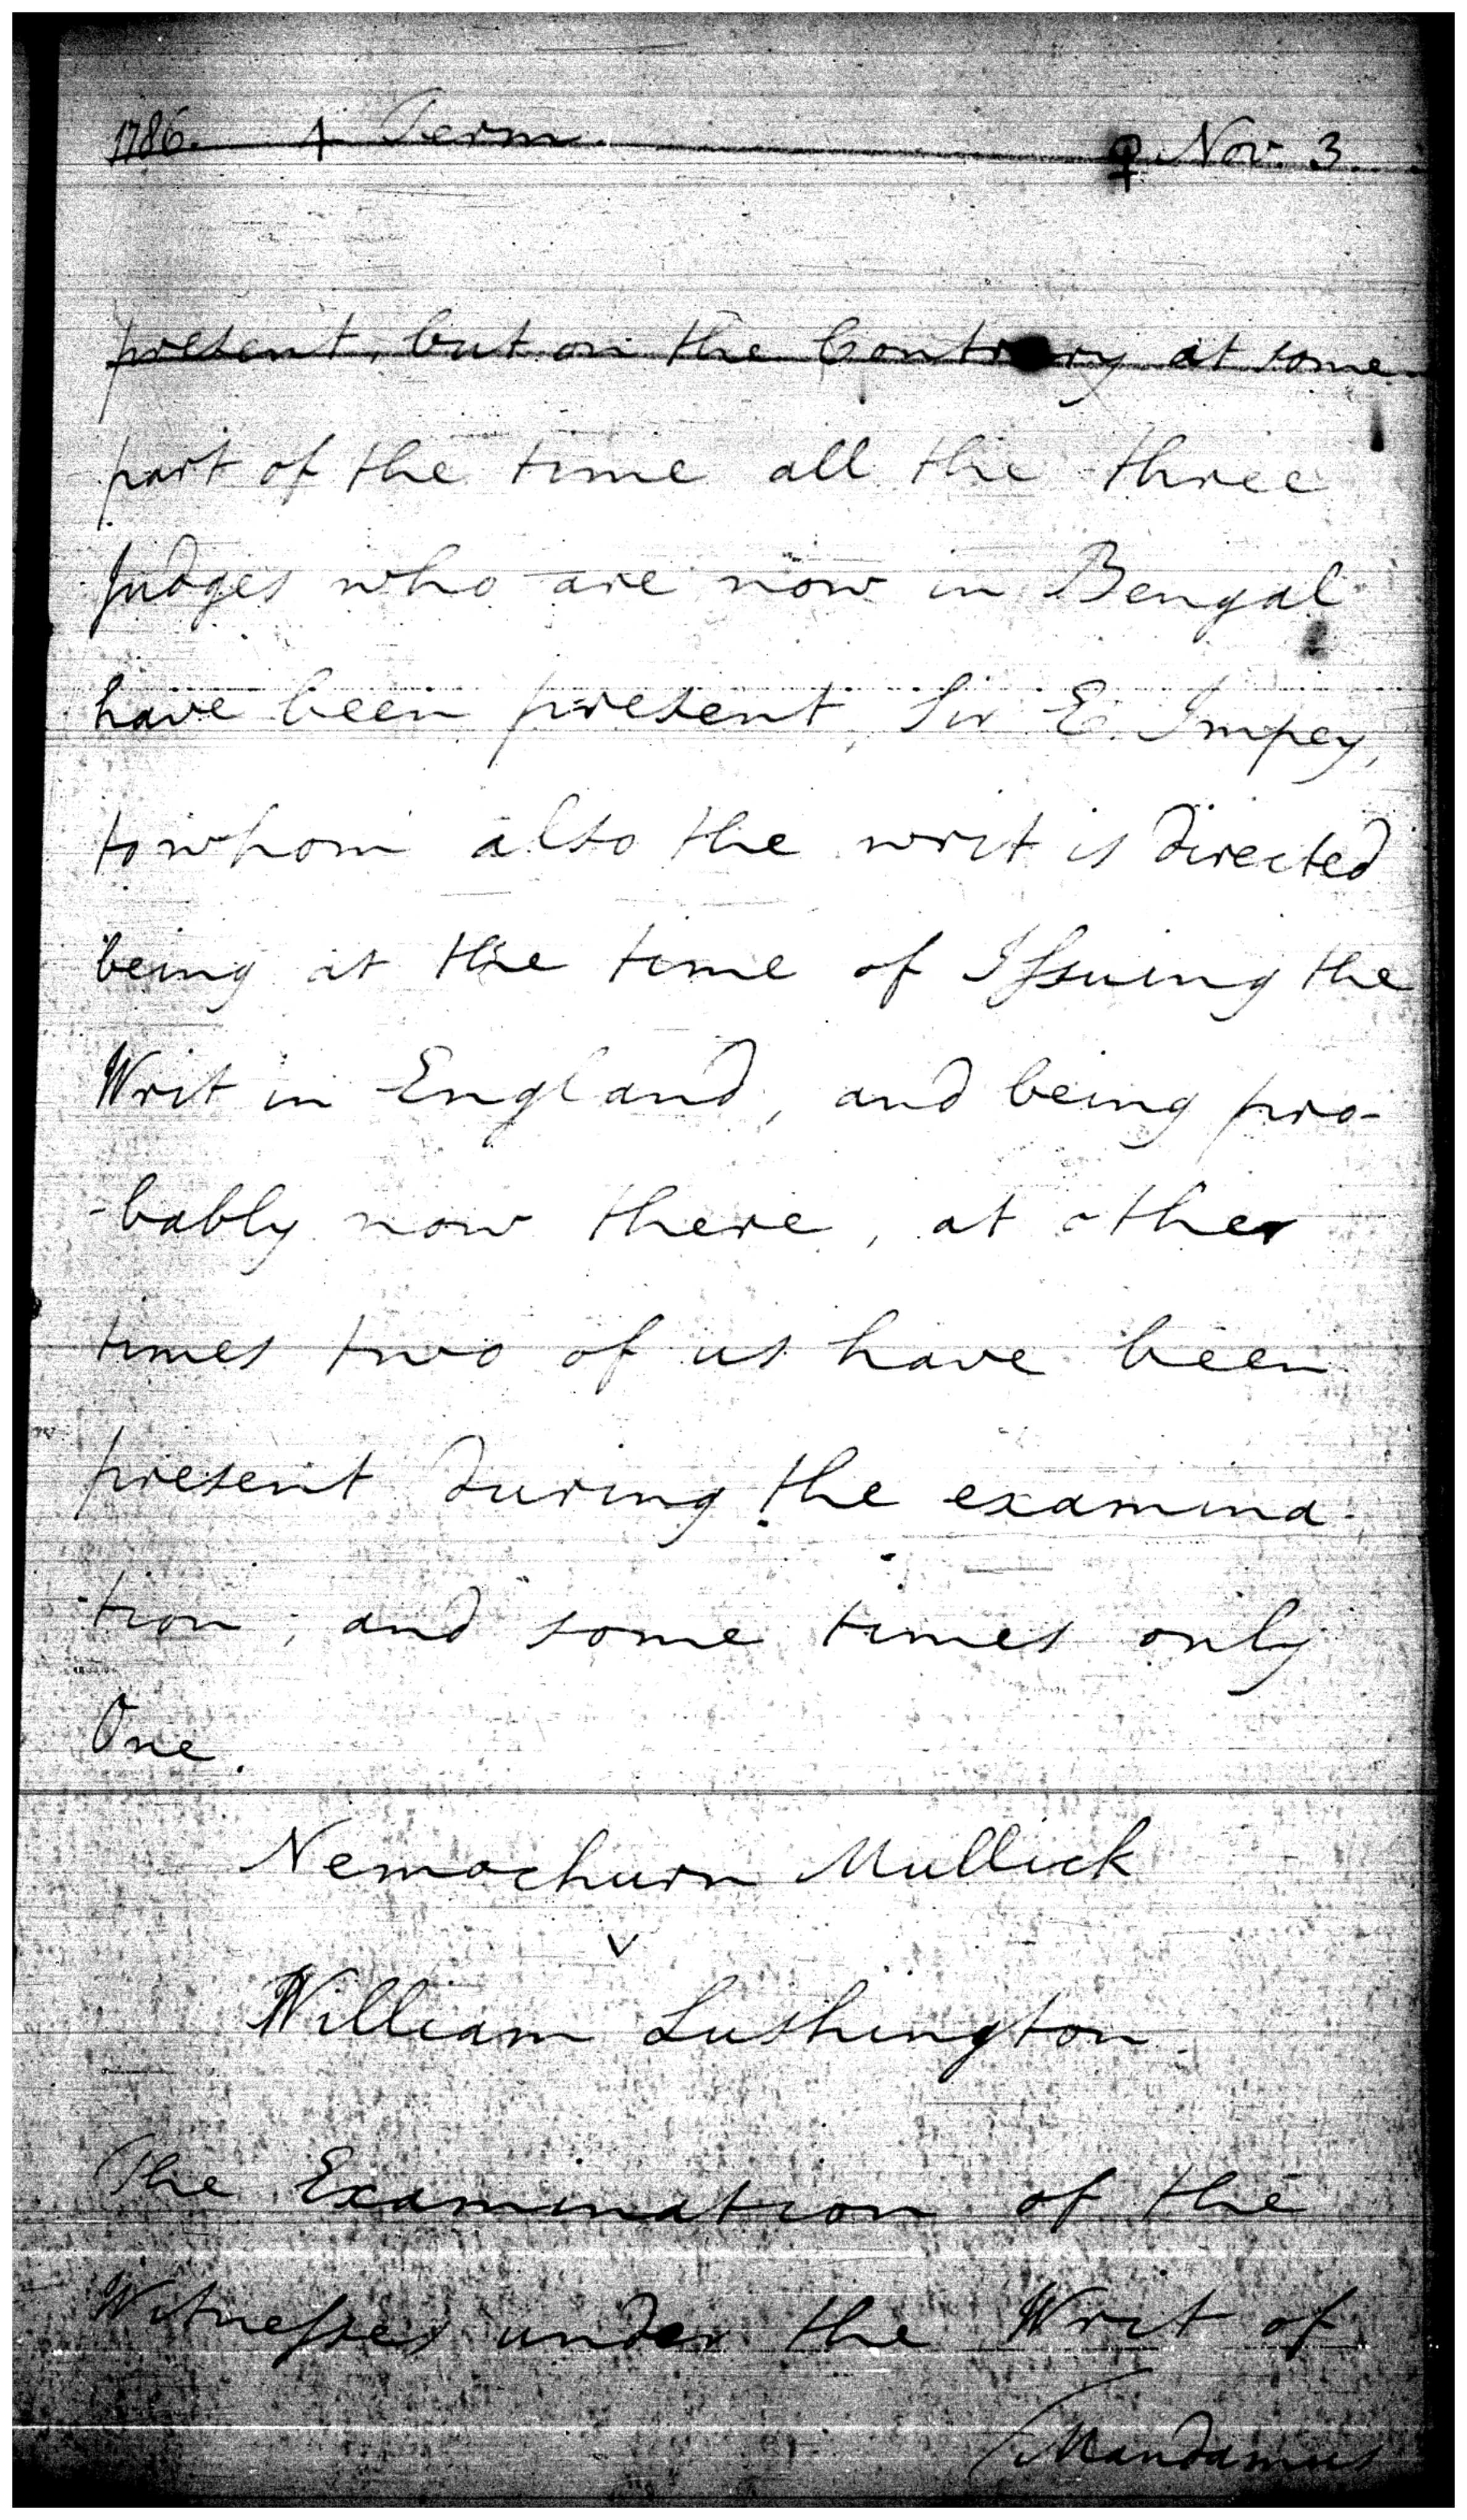 1786. 4 Term. ♀ Nov. 3.
present, but on the Contrary at some
part of the time all the three
Judges who are now in Bengal
have been present, Sir E. Impey,
to whom also the writ is directed
being at the time of Issuing the
Writ in England, and being pro-
-bably now there, at other
times two of us have been
present during the examina-
tion; and some times only
One.
Nemochurn Mullick
v
William Lushington.
The Examination of the
Witnesses under the Writ of
Mandamus